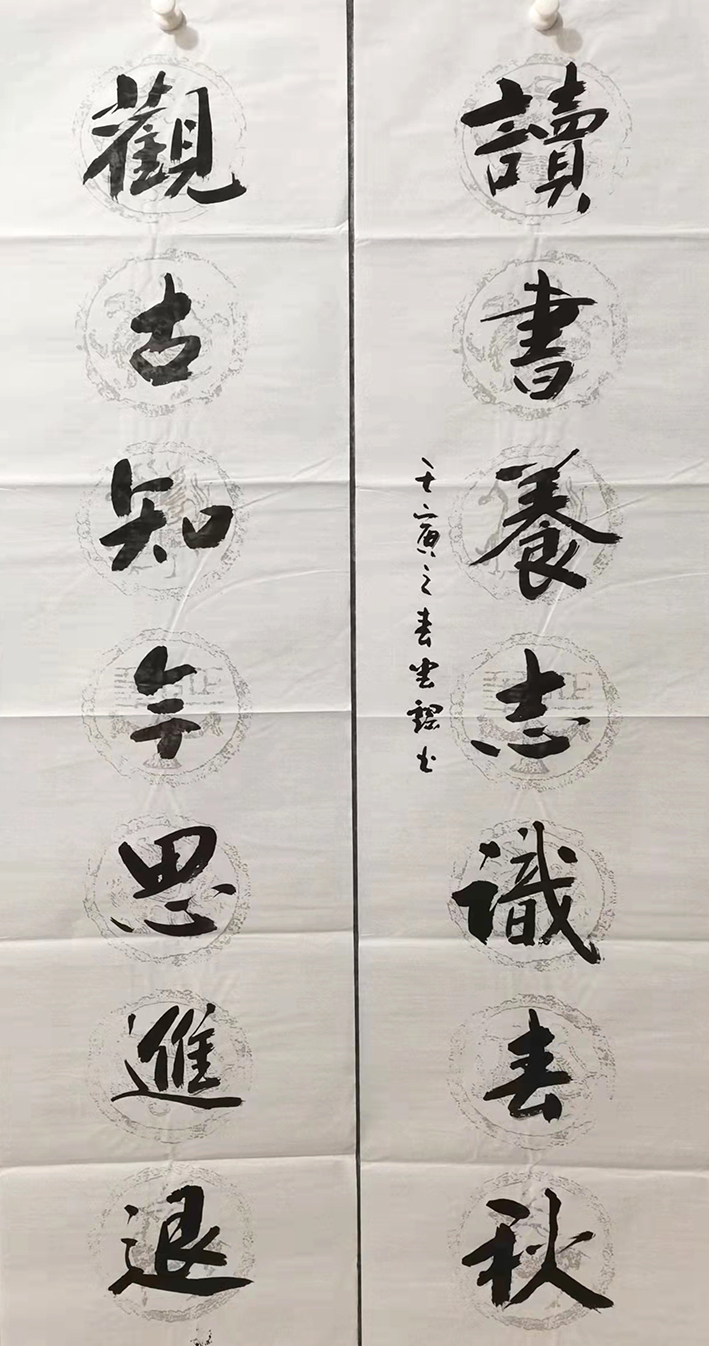 讀書養志識春秋
壬寅之春
書
觀古知今思進退